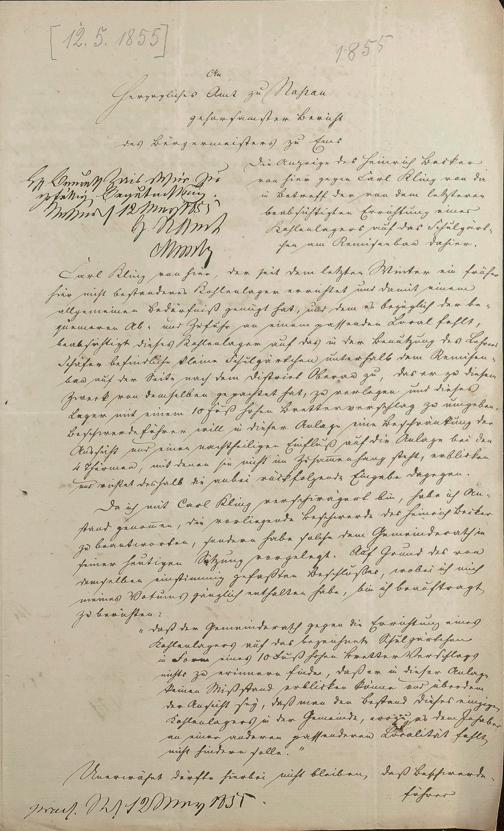 [12. 5. 1855]
1855
An
Herzogliches Amt zu Nassau
gehorsamster Bericht
des Bürgermeisters zu Ems
Die Anzeige des Heinrich Becker
von hier gegen Carl Kling von da
in Betreff der von dem letzteren
beabsichtigten Errichtung eines
Kohlenlagers auf das Schulgärt-
chen am Remisenbau dahier.
Carl Kling von hier, der seit dem letzten Winter ein früher
hier nicht bestandenes Kohlenlager errichtet und damit einem
allgemeinen Bedürfniß genügt hat, und dem es bezüglich der be-
quemeren Ab- und Zufuhr an einem passenden Local fehlt,
beabsichtigt dieses Kohlenlager auf das in der Benutzung des Lehrers
Schäfer befindliche kleine Schulgärtchen unterhalb dem Remisen-
bau auf der Seite nach dem District Oberau zu, das er zu diesem
Zweck von demselben gepachtet hat, zu verlegen und dieses
Lager mit einem 10 Fuß hohen Bretterverschlag zu umgeben.
Beschwerdeführer will in dieser Anlage eine Beschränkung der
Aussicht und einen nachtheiligen Einfluß auf die Anlage bei den
4 Thürmen, mit denen sie nicht im Zusammenhang steht, erblicken
und richtet deshalb die anbei rückfolgende Eingabe dagegen.
Da ich mit Carl Kling verschwägert bin, habe ich An-
stand genommen, die vorliegende Beschwerde des Heinrich Becker
zu beantworten, sondern habe solche dem Gemeinderath in
seiner heutigen Sitzung vorgelegt. Auf Grund des von
demselben einstimmig gefaßten Beschlusses, wobei ich mich
meines Votums gänzlich enthalten habe, bin ich beauftragt
zu berichten:
"daß der Gemeinderath gegen die Errichtung eines
Kohlenlagers auf das bezeichnete Schulgärtchen
in Form eines 10 Fuß hohen Bretter Verschlags
nichts zu erinnern finde, daß er in dieser Anlage
keinen Mißstand erblicken könne und überdem
der Ansicht sey, daß man den Bestand dieses einzigen
Kohlenlagers in der Gemeinde, wozu es dem Inhaber
an einer anderen passenderen Localität fehlt,
nicht hindern solle."
Unerwähnt dürfte hierbei nicht bleiben, daß Beschwerde-
führer
12 May 1855.